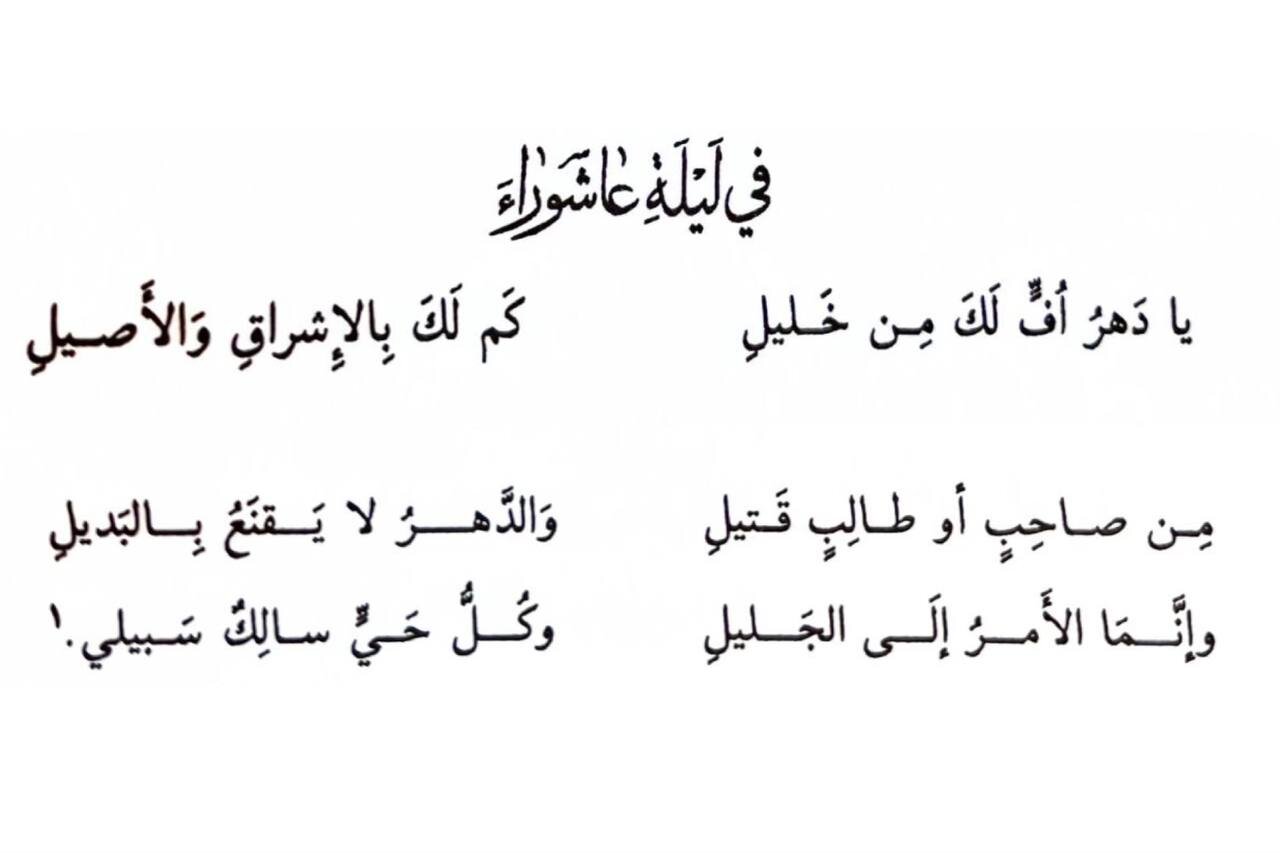 في لَيْلَةِ عاشَوراءَ
يا دَهرُ اُفٍّ لَكَ مِـن خَـليلِ كَم لَكَ بِالإِشراقِ وَالأَصـيلِ
مِـن صـاحِبٍ أو طـالِبٍ قَـتيلِ وَالدَّهـرُ لا يَـقنَعُ بِـالبَديلِ
وإنَّـمَا الأَمـرُ إلَـى الجَـليلِ وكُـلُّ حَـيٍّ سـالِكٌ سَـبيلي.١